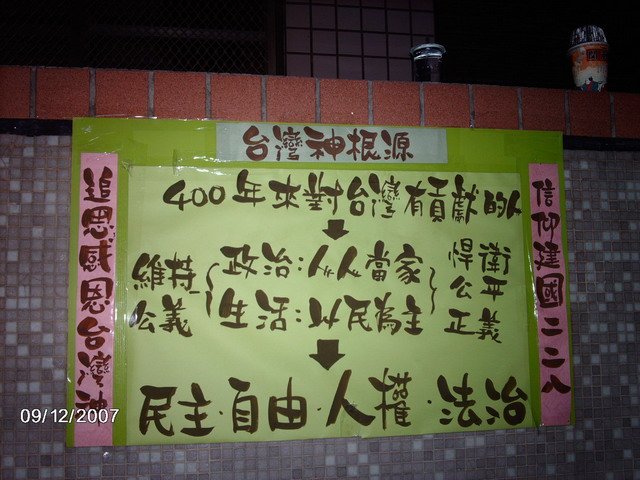 台灣神根源
追思感恩台灣神
400年來對台灣有貢獻的人
維持公義
政治:人人當家
生活:以民為主
悍衛
公平
正義
民主·自由·人權·法治
信仰建國二二八
09/12/2007